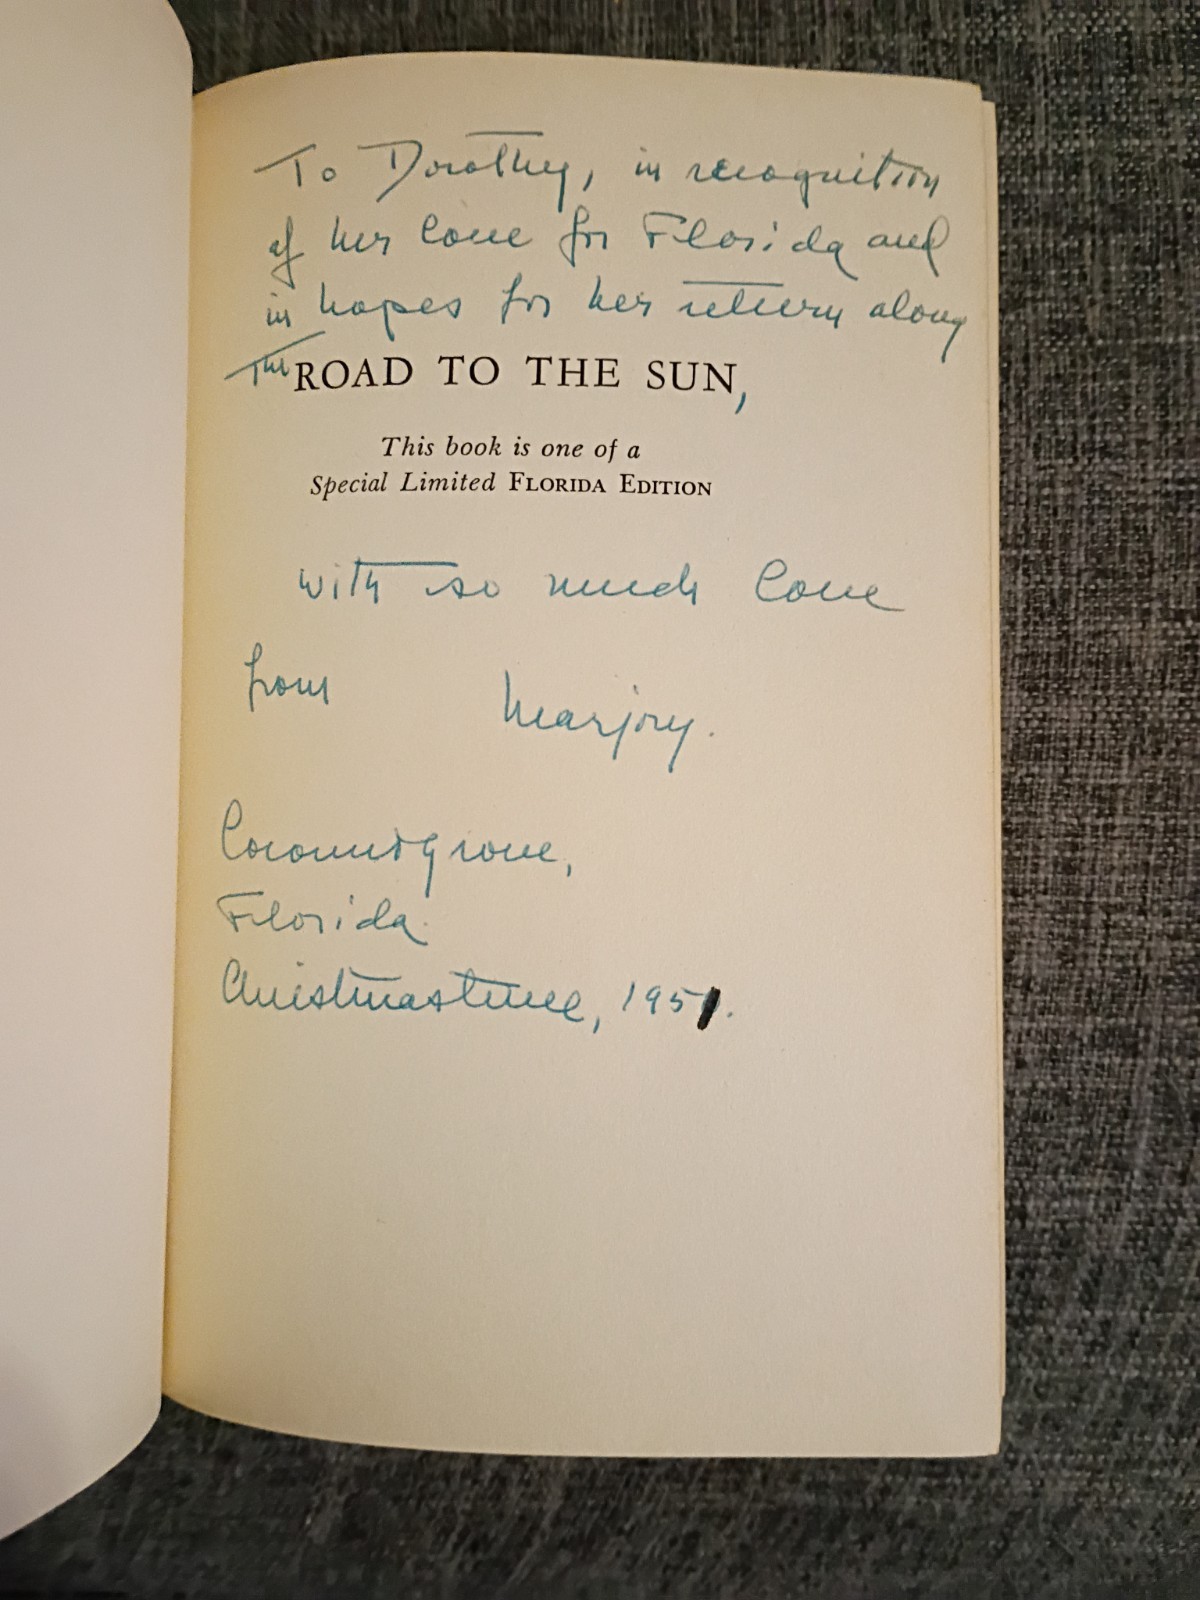 To Dorothy, in recognition
of her love for Florida and
in hopes for her return along
The ROAD TO THE SUN,
This book is one of a
Special Limited FLORIDA EDITION
with so much love
from Marjory.
Coconut grove,
Florida.
Christmastime, 1951.